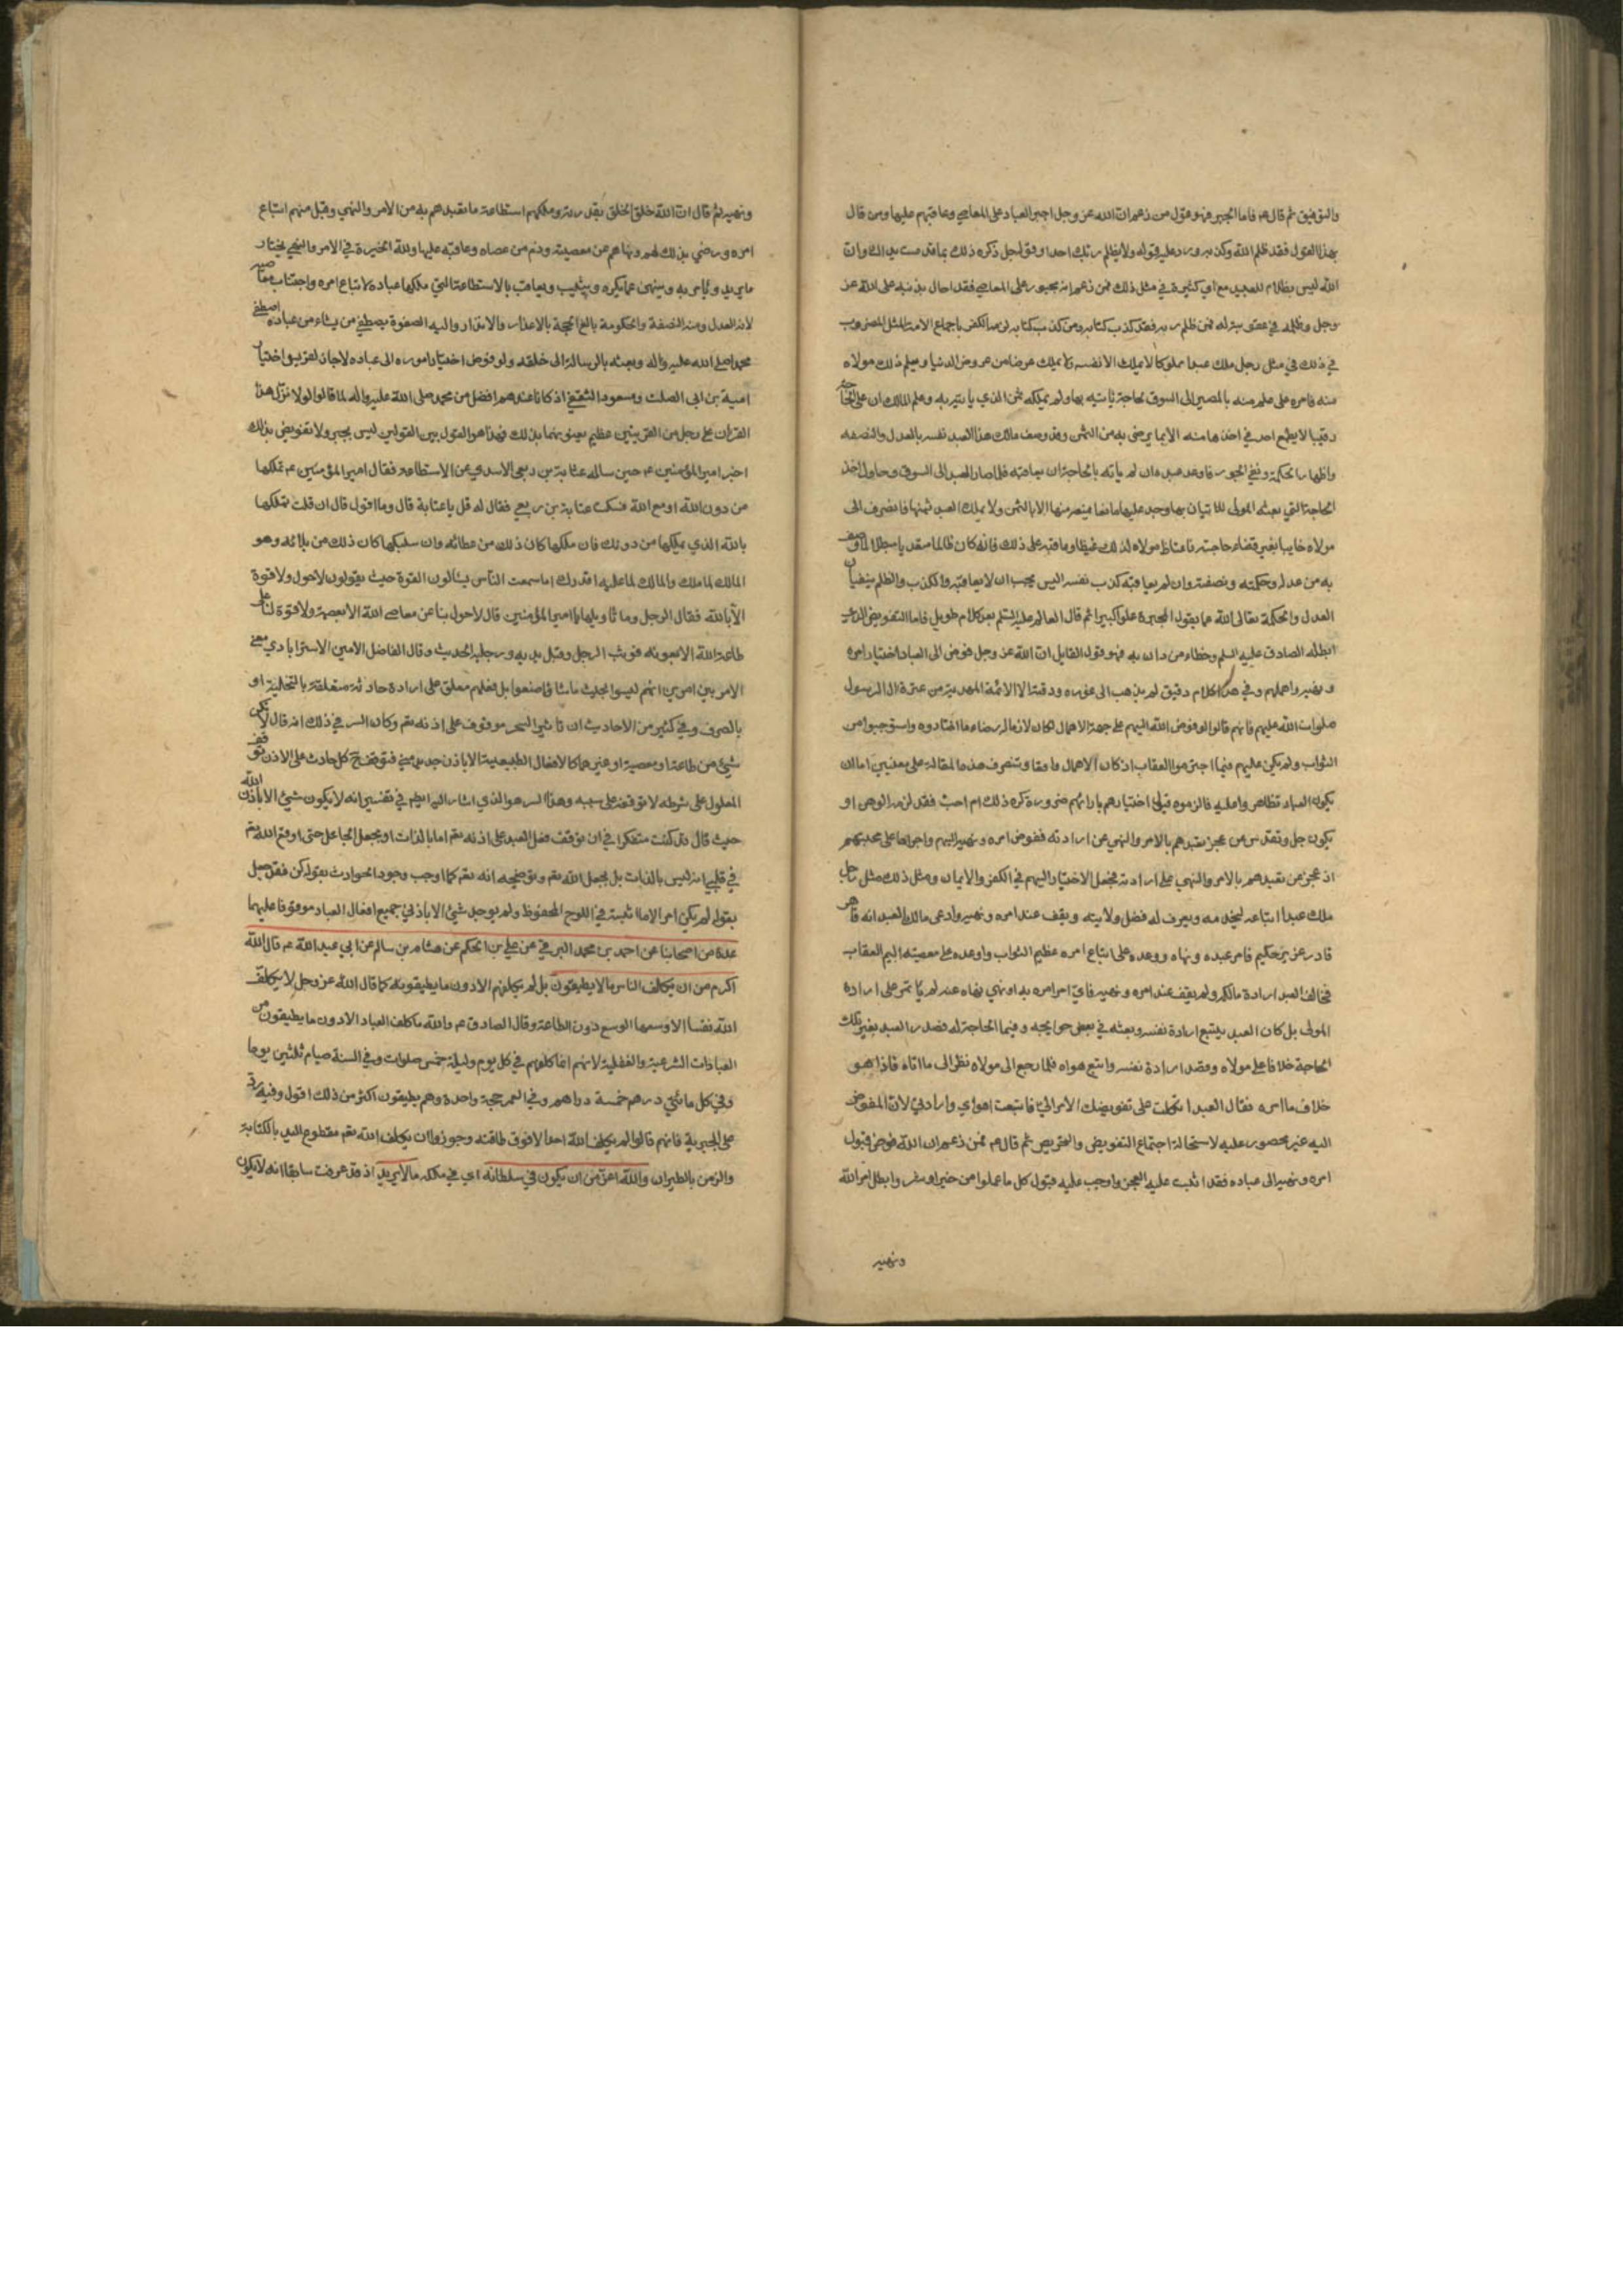 والتوفيق ثم قال ع فاما الجبر فهو قول من زعم ان الله عز وجل اجبر العباد على المعاصي وعاقبهم عليها ومن قال
بهذا القول فقد ظلم الله وكذبه ورد عليه قوله ولا يظلم ربك احدا وقوله جل ذكره ذلك بما قدمت يداك وان
الله ليس بظلام للعبيد مع اي كثيرة في مثل ذلك فمن زعم انه مجبور على المعاصي فقد احال بذنبه على الله عز
وجل وظلمه في عقوبته له فمن ظلم ربه فقد كذب كتابه ومن كذب كتابه لزمه الكفر باجماع الامة المثل المضروب
في ذلك في مثل رجل ملك عبدا مملوكا لا يملك الا نفسه ولا يملك عرضا من عروض الدنيا ويعلم ذلك مولاه
منه فامره على علم منه بالمصير الى السوق لحاجة ياتيه بها ولم يملكه ثمن الذي ياتيه به وعلم المالك ان على الحاجة
رقيبا لا يطمع احد في اخذها منه الا بما يرضى به من الثمن وقد وصف مالك هذا العبد نفسه بالعدل والنصفه
واظهار الحكمة ونفي الجور فاوعد عبده ان لم ياته بالحاجة ان يعاقبه فلما صار العبد الى السوق وحاول اخذ
الحاجة التي بعثه المولى للاتيان بها وجد عليها مانعا يمنعه منها الا بالثمن ولا يملك العبد ثمنها فانصرف الى
مولاه خايبا بغير قضاء حاجته فاغتاظ مولاه لذلك غيظا وعاقبه على ذلك فانه كان ظالما متعديا مبطلا لما وصف
به من عدله وحكمته ونصفته وان لم يعاقبه كذب نفسه اليس يجب ان لا يعاقبه والكذب والظلم ينفيان
العدل والحكمة تعالى الله عما يقول المجبرة علوا كبيرا ثم قال العالم عليه السلم بعد كلام طويل فاما التفويض الذي
ابطله الصادق عليه السلم وخطاء من دان به فهو قول القايل ان الله عز وجل فوض الى العباد اختيار امره
ونهيه واهملهم وفي هذا كلام دقيق لم يذهب الى غوره ودقته الا الائمة المهديه من عترة ال الرسول
صلوات الله عليهم فانهم قالوا لو فوض الله اليهم على جهة الاهمال لكان لازما له رضاء ما اختاروه واستوجبوا من
الثواب ولم يكن عليهم فيما اجترموا العقاب اذ كان الاهمال واقعا وتنصرف هذه المقالة على معنيين اما ان
يكون العباد تظاهروا عليه فالزموه قبول اختيارهم بارائهم ضرورة كره ذلك ام احب فقد لزمه الوهن او
يكون جل وتقدس عن عجز تعبدهم بالامر والنهي عن ارادته ففوض امره ونهيه اليهم واجراها على محبتهم
اذ عجز عن تعبدهم بالامر والنهي على ارادته فجعل الاختيار اليهم في الكفر والايمان ومثل ذلك مثل رجل
ملك عبدا ابتاعه ليخدمه ويعرف له فضل ولايته ويقف عند امره ونهيه وادعى مالك العبد انه قاهر
قادر عزيز حكيم فامر عبده ونهاه ووعده على اتباع امره عظيم الثواب واوعده على معصيته اليم العقاب
فخالف العبد ارادة مالكه ولم يقف عند امره ونهيه فاي امر امره به او نهي نهاه عنه لم ياتمر على ارادة
المولى بل كان العبد يتبع ارادة نفسه وبعثه في بعض حوايجه وفيما الحاجة له فصدر العبد بغير تلك
الحاجة خلافا على مولاه وقصد ارادة نفسه واتبع هواه فلما رجع الى مولاه نظر الى ما اتاه فاذا هو
خلاف ما امره فقال العبد اتكلت على تفويضك الامر الي فاتبعت هواي وارادتي لان المفوض
اليه غير محصور عليه لاستحالة اجتماع التفويض والتحريص ثم قال ع فمن زعم ان الله فوض قبول
امره ونهيه الى عباده فقد اثبت عليه العجز واوجب عليه قبول كل ما عملوا من خير او شر وابطل امر الله
ونهيه
ونهيه ثم قال ان الله خلق الخلق بقدرته وملكهم استطاعة ما تعبدهم به من الامر والنهي وقبل منهم اتباع
امره ورضي بذلك لهم ونهاهم عن معصيته وذم من عصاه وعاقبه عليها ولله الخيرة في الامر والنهي يختار
ما يريد ويامر به وينهى عما يكره ويثيب ويعاقب بالاستطاعة التي ملكها عباده لاتباع امره واجتناب معاصيه
لانه العدل ومنه النصفة والحكومة بالغ الحجة بالاعذار والانذار واليه الصفوة يصطفي من يشاء من عباده اصطفى
محمدا صلى الله عليه واله وبعثه بالرسالة الى خلقه ولو فوض اختيار اموره الى عباده لاجاز لقريش اختيار
امية بن ابي الصلت ومسعود الثقفي اذ كانا عندهم افضل من محمد صلى الله عليه واله لما قالوا لولا نزل هذا
القران على رجل من القريتين عظيم يعنونهما بذلك فهذا هو القول بين القولين ليس بجبر ولا تفويض بذلك
اخبر امير المؤمنين ع حين ساله عتابة بن ربعي الاسدي عن الاستطاعه فقال امير المؤمنين ع تملكها
من دون الله او مع الله فسكت عتابة بن ربعي فقال له قل يا عتابة قال وما اقول قال ان قلت تملكها
بالله الذي يملكها من دونك فان ملكها كان ذلك من عطائه وان سلبكها كان ذلك من بلائه وهو
المالك لما ملك والمالك لما عليه اقدرك اما سمعت الناس يسالون القوة حيث يقولون لا حول ولا قوة
الا بالله فقال الرجل وما تاويلها يا امير المؤمنين قال لا حول بنا عن معاصي الله الا بعصمة ولا قوة لنا على
طاعة الله الا بعونه فوثب الرجل وقبل يديه ورجليه الحديث وقال الفاضل الامين الاسترابادي معنى
الامر بين امرين انهم ليسوا بحيث ما شاؤا صنعوا بل فعلهم معلق على ارادة حادثة متعلقة بالتخلية او
بالصرف وفي كثير من الاحاديث ان تاثير السحر موقوف على اذنه تعم وكان السر في ذلك انه قال لا يكون
شيء من طاعة او معصية او غيرهما كالافعال الطبيعية الا باذن جديد مني فتوقف كل حادث على الاذن توقف
المعلول على شرطه لا توقفه على سببه وهذا السر هو الذي اشار اليه في تفسير انه لا يكون شيء الا باذن الله
حيث قال قد كنت متفكرا في ان توقف فعل العبد على اذنه تعم اما بالذات او بجعل الجاعل حتى اوقع الله تعم
في قلبي انه ليس بالذات بل بجعل الله تعم وتوضيحه انه تعم كما اوجب وجود الحوادث بقوله كن فقد جعل
بقوله لم يكن امر الا ما اثبته في اللوح المحفوظ ولم يوجد شيء الا باذني جميع افعال العباد موقوفا عليهما
عدة من اصحابنا عن احمد بن محمد البرقي عن علي بن الحكم عن هشام بن سالم عن ابي عبد الله ع قال الله
اكرم من ان يكلف الناس ما لا يطيقون بل لم يكلفهم الا دون ما يطيقونه كما قال الله عز وجل لا يكلف
الله نفسا الا وسعها الوسع دون الطاعة وقال الصادق ع والله ما كلف العباد الا دون ما يطيقون من
العبادات الشرعية والعقلية لانهم انما كلفهم في كل يوم وليلة خمس صلوات وفي السنة صيام ثلثين يوما
وفي كل مائتي درهم خمسة دراهم وفي العمر حجة واحدة وهم يطيقون اكثر من ذلك اقول وفيه رد
على الجبرية فانهم قالوا لم يكلف الله احدا الا فوق طاقته وجوزوا ان يكلف الله تعم مقطوع اليد بالكتابة
والزمن بالطيران والله اعز من ان يكون في سلطانه اي في ملكه ما لا يريد اذ قد عرفت سابقا انه لا يكون